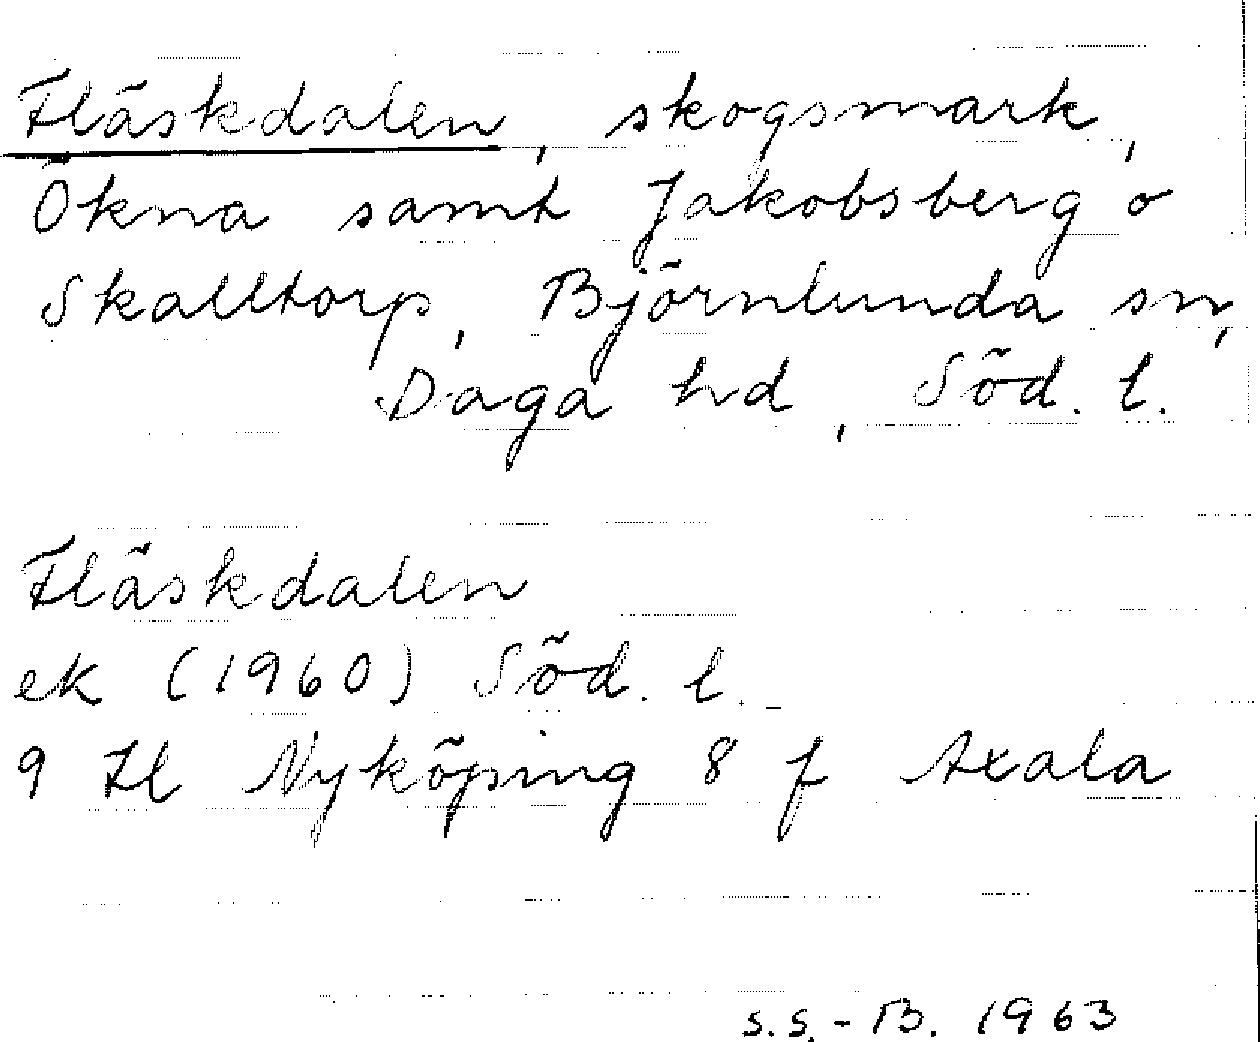 Fläskdalen, skogsmark,
Ökna samt Jakobsberg o
Skalltorp, Björnlunda sn,
Daga hd, Söd. l.
Fläskdalen
ek (1960) Söd. l.
9 H Nyköping 8 f Axala
S.S.-B. 1963